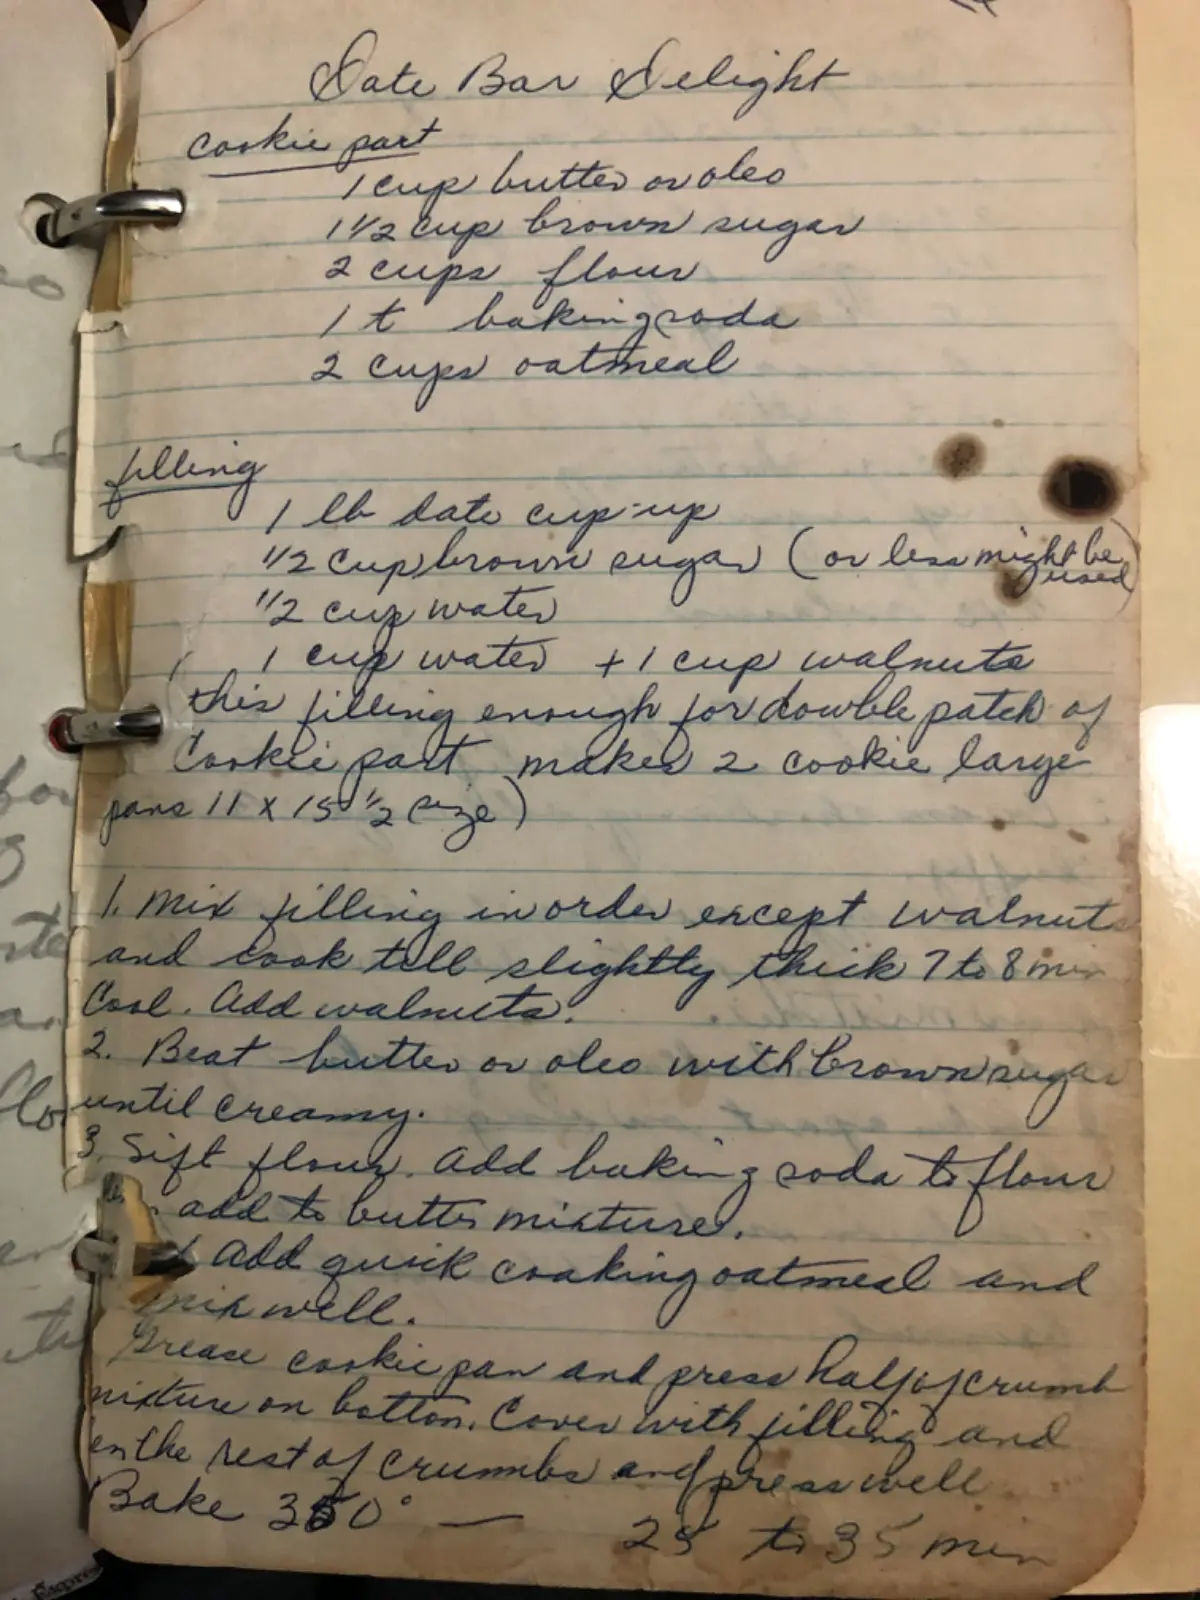 Date Bar Delight
cookie part
1 cup butter or oleo
1 1/2 cup brown sugar
2 cups flour
1 t baking soda
2 cups oatmeal
filling
1 lb date cup-up
1/2 cup brown sugar (or less might be
used)
1/2 cup water
1 cup water + 1 cup walnuts
(this filling enough for double patch of
Cookie part makes 2 cookie large
pans 11 x 15 1/2 size)
1. Mix filling in order except walnuts
and cook till slightly thick 7 to 8 min
Cool. Add walnuts.
2. Beat butter or oleo with brown sugar
until creamy.
3. Sift flour. Add baking soda to flour
add to butter mixture.
Add quick cooking oatmeal and
mix well.
Grease cookie pan and press half of crumb
mixture on bottom. Cover with filling and
the rest of crumbs and press well
Bake 350° — 25 to 35 min